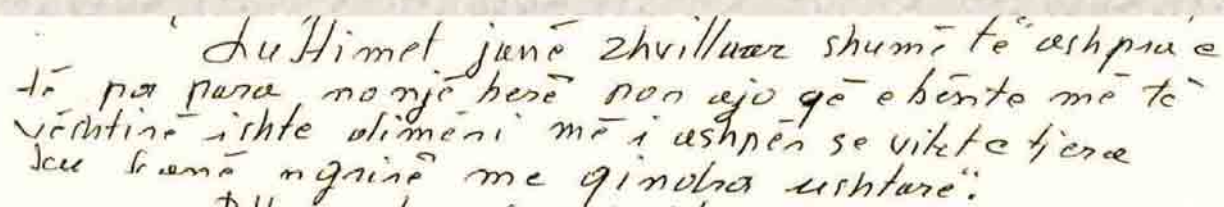 Luftimet janë zhvilluar shumë të ashpra e
të pa para nonjë herë por ajo që e bënte më të
vështirë ishte dimëni më i ashpën se vitet e tjera
ku kanë ngrirë me qindra ushtarë".